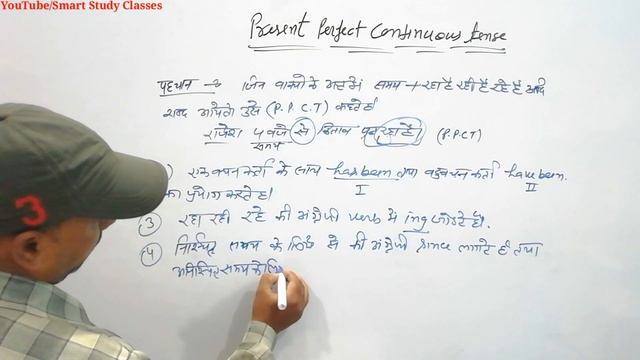 YouTube/Smart Study Classes
Present Perfect Continuous tense
पहचान → जिन वाक्यों के अन्त में समय + रहा है रही है रहे हैं आदि
शब्द आये तो उसे (P.P.C.T) कहते हैं।
राजेश 4 बजे से किताब पढ़ रहा है। (P.P.C.T)
समय
) एक वचन कर्ता के साथ has been तथा बहुवचन कर्ता have been
I II
का प्रयोग करते हैं।
3 रहा रही रहे की अंग्रेजी verb में ing जोड़ते हैं।
4 निश्चित समय के लिए से की अंग्रेजी since लगाते हैं तथा
अनिश्चित समय के लि
3